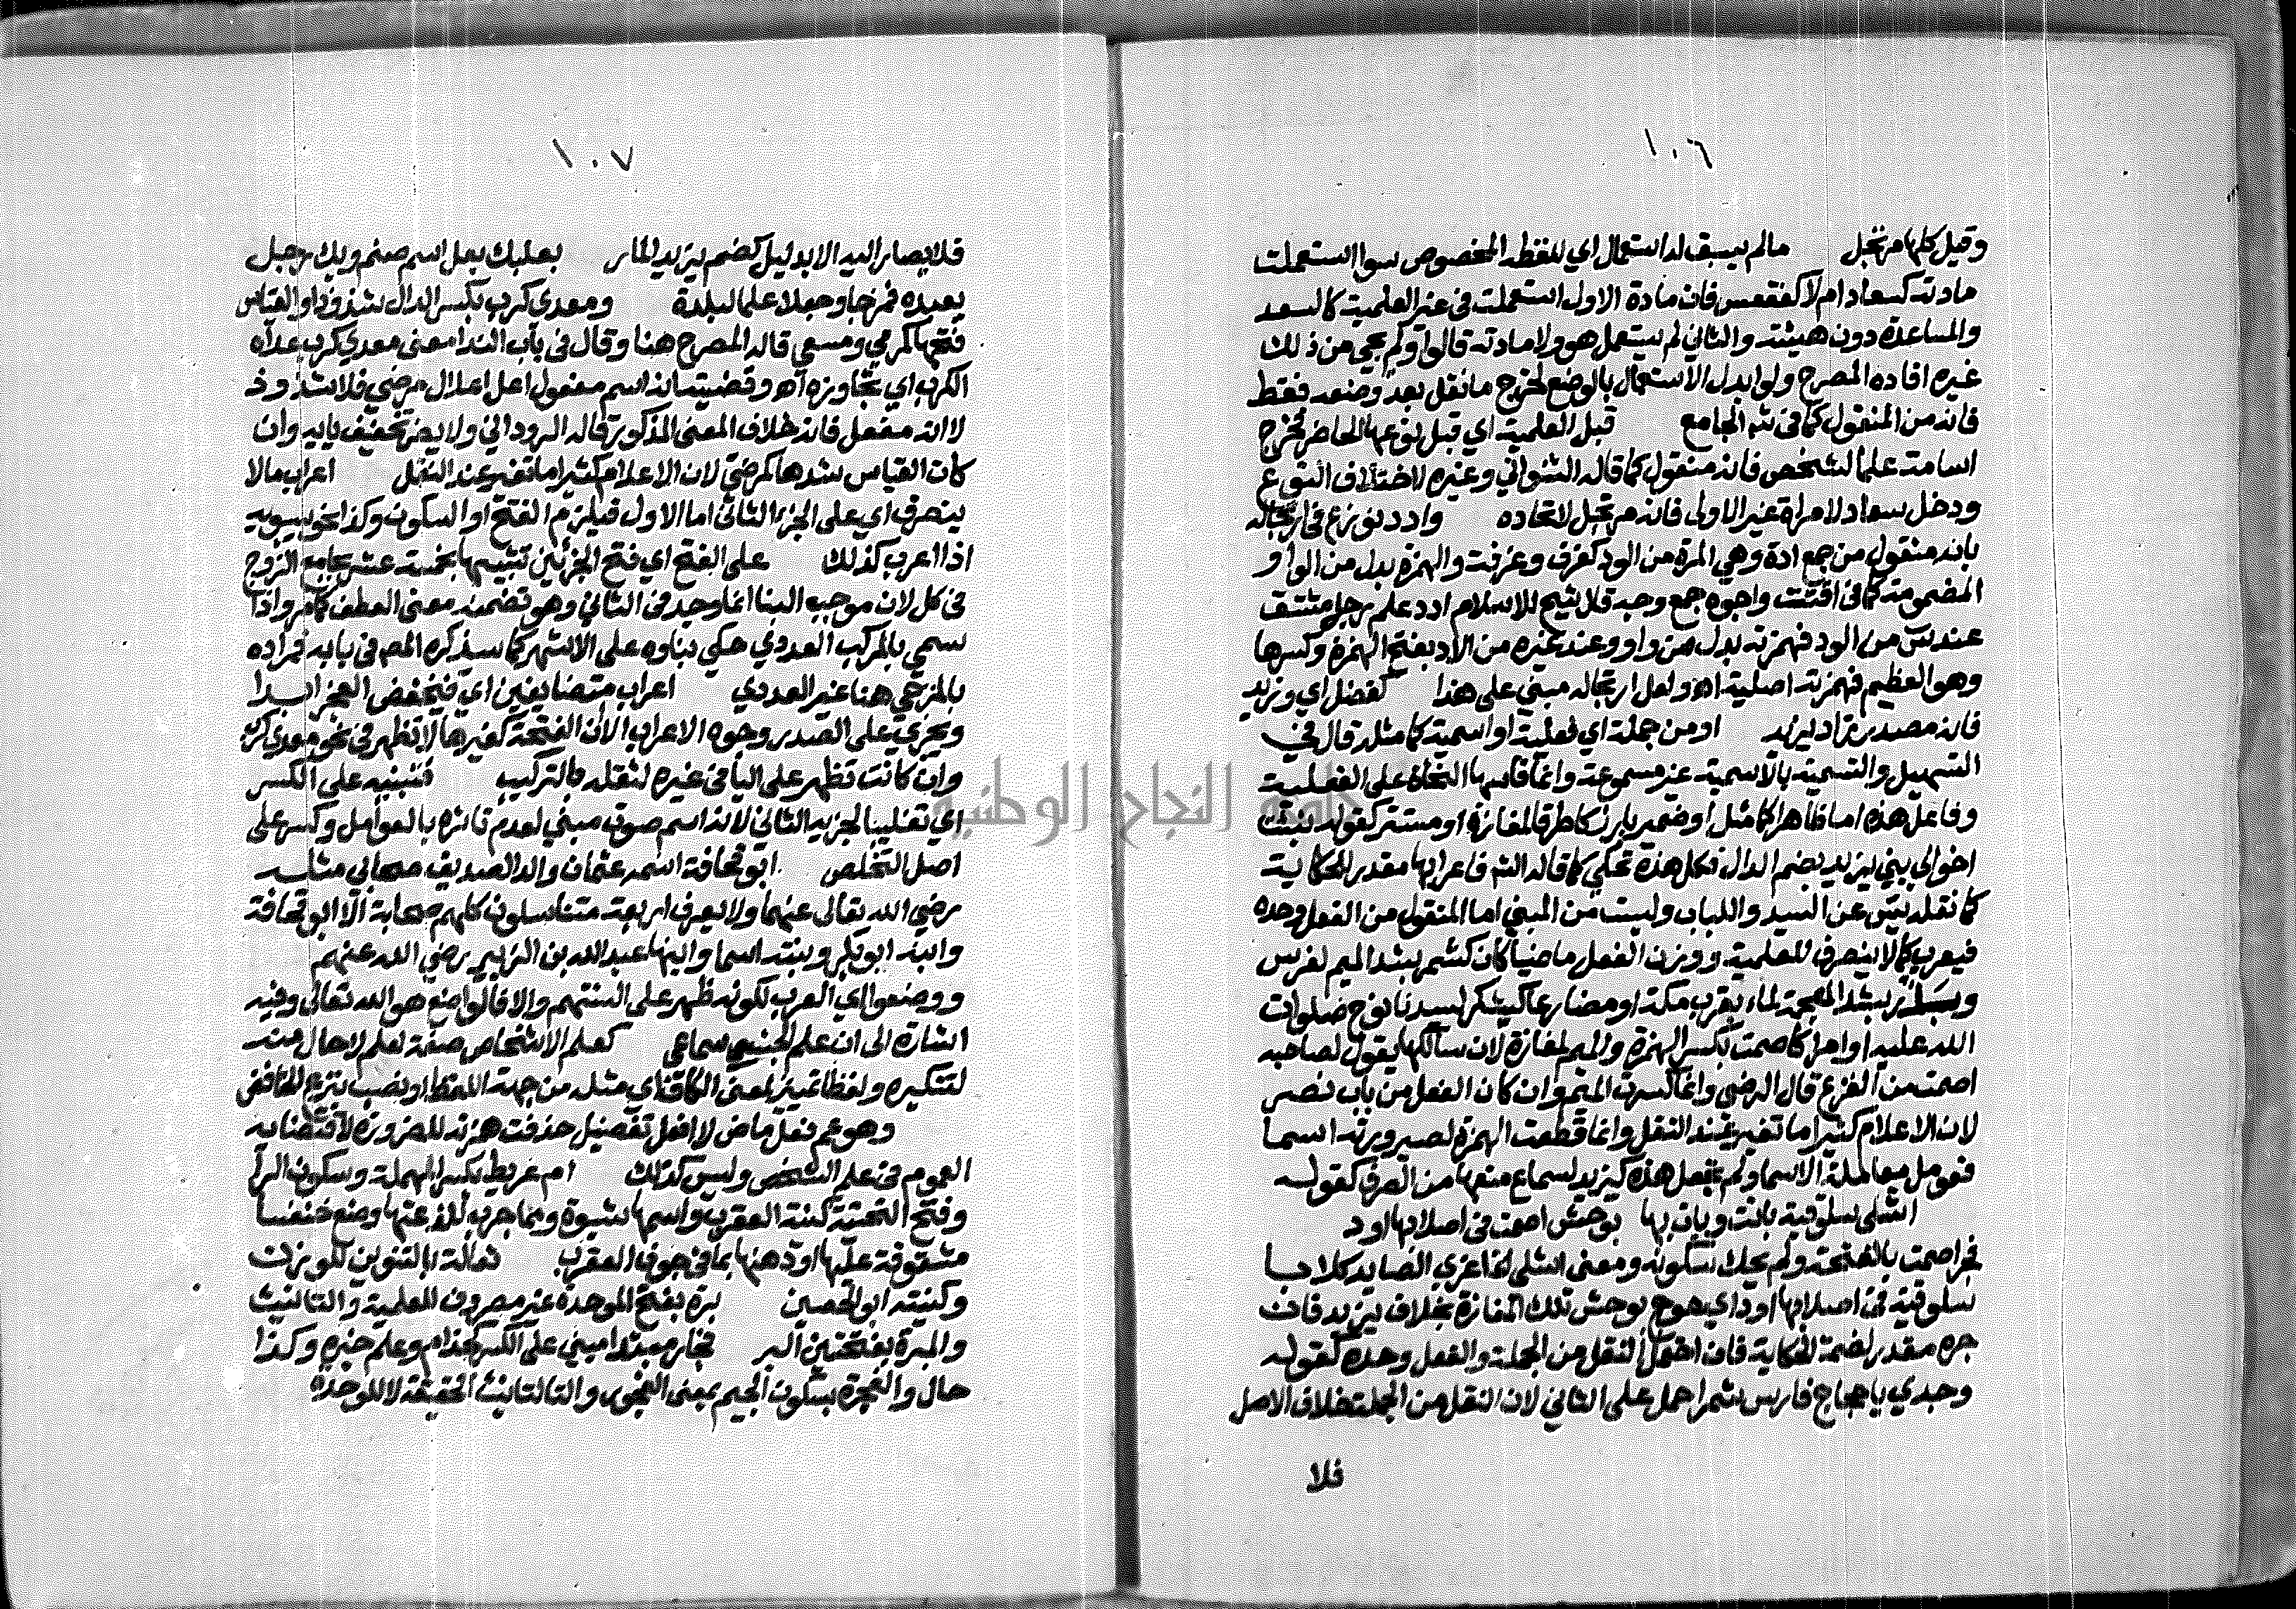 ١٠٦
وقيل كلها مرتجل ما لم يسبق له استعمال اي للفظه المخصوص سوا استعملت
مادته كسعاد ام لا كفقعس فان مادة الاول استعملت في غير العلمية كالسعد
والمساعدة دون هيئته والثاني لم يستعمل هو ولا مادته قالوا ولم يجي من ذلك
غيره افاده المصرح ولو ابدل الاستعمال بالوضع لخرج ما نقل بعد وضعه فقط
فانه من المنقول كما في شرح الجامع قبل العلمية اي قبل نوعها الحاضر فخرج
اسامة علما لشخص فانه منقول كما قاله الشنواني وغيره لاختلاف النوع
ودخل سعاد لامراة غير الاولى فانه مرتجل لاتحاده وادد نوزع في ارتجاله
بانه منقول من جمع ادة وهي المرة من الود كغرف وغرفة والهمزة بدل من الواو
المضمومة كما في اقتت واجوه جمع وجه قال شيخ الاسلام ادد علم رجل مشتق
عند س من الود فهمزته بدل من واو وعند غيره من الاد بفتح الهمزة وكسرها
وهو العظيم فهمزته اصلية اه ولعل ارتجاله مبني على هذا كفضل اي وزيد
فانه مصدر زاد يزيد او من جملة اي فعلية او اسمية كما مثله قال في
التسهيل والتسمية بالاسمية غير مسموعة وانما قاسها النحاة على الفعلية
وفاعل هذه اما ظاهر كما مثل او ضمير بارز كاطرقا لمفازة او مستتر كقوله نبئت
اخوالي بني يزيد بضم الدال فكل هذه تحكي كما قاله الشـ فاعرابها مقدر للحكاية
كما نقله يس عن السيد واللباب وليست من المبني اما المنقول من الفعل وحده
فيعرب كما لا ينصرف للعلمية ووزن الفعل ماضيا كان كشمر بشد الميم لفرس
وبذر بشد المعجمة لماء بقرب مكة او مضارعا كيشكر لسيدنا نوح صلوات
الله عليه او امرا كاصمت بكسر الهمزة والميم لمفازة لان سالكها يقول لصاحبه
اصمت من الفزع قال الرضي وانما كسرت الميم وان كان الفعل من باب نصر
لان الاعلام كثيرا ما تغير عند النقل وانما قطعت الهمزة لصيرورته اسما
فعومل معاملة الاسما ولم تجعل هذه كيزيد لسماع منعها من الصرف كقوله
اشلى سلوقية باتت وبات بها بوحش اصمت في اصلابها اود
فجر اصمت بالفتحة ولم يحك سكونه ومعنى اشلى اغرى الصايد كلابا
سلوقية في اصلابها اود اي عوج بوحش تلك المفازة بخلاف يزيد فان
جره مقدر لضمة الحكاية فان احتمل النقل من الجملة والفعل وحده كقوله
وجدي يا حجاج فارس شمرا حمل على الثاني لان النقل من الجملة خلاف الاصل
فلا
١٠٧
فلا يصار اليه الا بدليل كضم يزيد المار بعلبك بعل اسم صنم وبك رجل
يعبده فمزجا وجعلا علما لبلدة ومعدي كرب بكسر الدال شذوذا والقياس
فتحها كمرمى ومسعى قاله المصرح هنا وقال في باب الندا معنى معدي كرب عداه
الكرب اي تجاوزه اه وقضيته انه اسم مفعول اعل اعلال مرضي فلا شذوذ
لا انه مفعل فانه خلاف المعنى المذكور قاله الروداني ولا يضر تخفيف يايه وان
كان القياس شدها كمرضي لان الاعلام كثيرا ما تغير عند النقل اعراب ما لا
ينصرف اي على الجزء الثاني اما الاول فيلزم الفتح او السكون وكذا نحو سيبويه
اذا اعرب كذلك على الفتح اي فتح الجزئين تشبيها بخمسة عشر بجامع المزج
في كل لان موجب البنا انما وجد في الثاني وهو تضمنه معنى العطف كما مر واذا
سمي بالمركب العددي حكي بناوه على الاشهر كما سيذكره المص في بابه فمراده
بالمزجي هنا غير العددي اعراب متضايفين اي فيخفض العجز ابدا
ويجري على الصدر وجوه الاعراب الا ان الفتحة كغيرها لا تظهر في نحو معدي كرب
وان كانت تظهر على اليا في غيره لثقله بالتركيب فتبنيه على الكسر
اي تغليبا لجزيه الثاني لانه اسم صوت مبني لعدم تاثره بالعوامل وكسر على
اصل التخلص ابو قحافة اسمه عثمان والد الصديق صحابي مثله
رضي الله تعالى عنهما ولا يعرف اربعة متناسلون كلهم صحابة الا ابو قحافة
وابنه ابو بكر وبنته اسما وابنها عبد الله بن الزبير رضي الله عنهم
ووضعوا اي العرب لكونه ظهر على السنتهم والا فالواضع هو الله تعالى وفيه
اشارة الى ان علم الجنس سماعي كعلم الاشخاص صفة لعلم لا حال منه
لتنكيره ولفظا تمييز لمعنى الكاف اي مثله من جهة اللفظ او نصب بنزع الخافض
وهو عم فعل ماض لا افعل تفضيل حذفت همزته للضرورة لاقتضايه
العموم في علم الشخص وليس كذلك ام عريط بكسر المهملة وسكون الرا
وفتح التحتية كنية العقرب واسمها شبوة ومما جرب للذعتها وضع خنفسا
مشقوقة عليها او دهنها بما في جوف العقرب ثعالة بالتنوين للوزن
وكنيته ابو الحصين برة بفتح الموحدة غير مصروف للعلمية والتانيث
والمبرة بفتحتين البر فجار مبتدا مبني على الكسر كحذام وعلم خبره وكذا
حال والفجرة بسكون الجيم بمعنى الفجور والتا لتانيث الحقيقة لا للوحدة
جامعة النجاح الوطنية